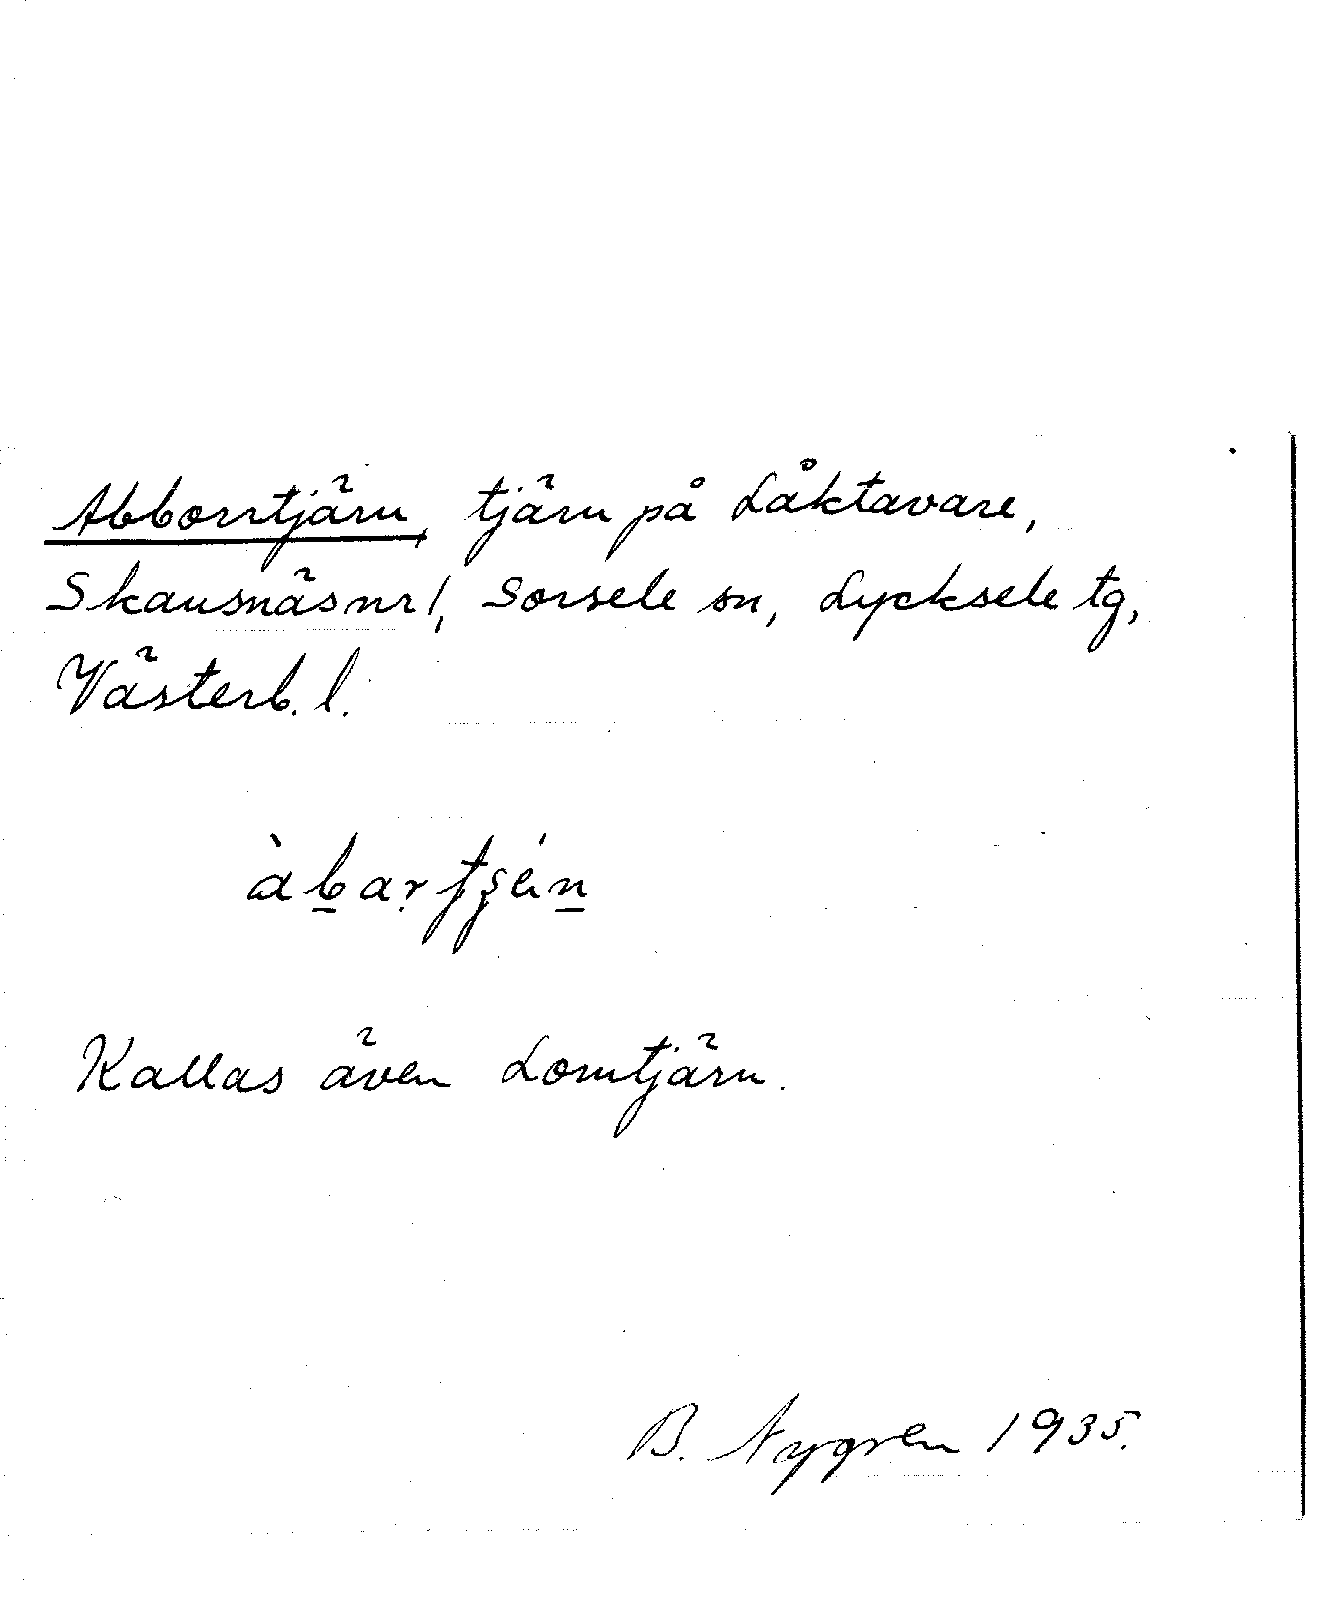 Abborrtjärn, tjärn på Låktavare,
Skansnäs nr 1, Sorsele sn, Lycksele tg,
Västerb. l.
àbartʃén
Kallas även Lomtjärn.
B. Nygren 1935.